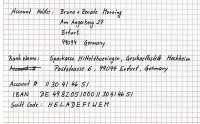 Account Holder: Bruno + Renate Henning
Am Angerberg 27
Erfurt
99094 Germany
Bank Name: Sparkasse Mittelthüringen, Geschäftsstelle Hochheim
Poststrasse 6, 99094 Erfurt, Germany
Account # 1130414651
IBAN DE 49 8205 1000 1130 4146 51
Swift Code: HELADEF1WEM